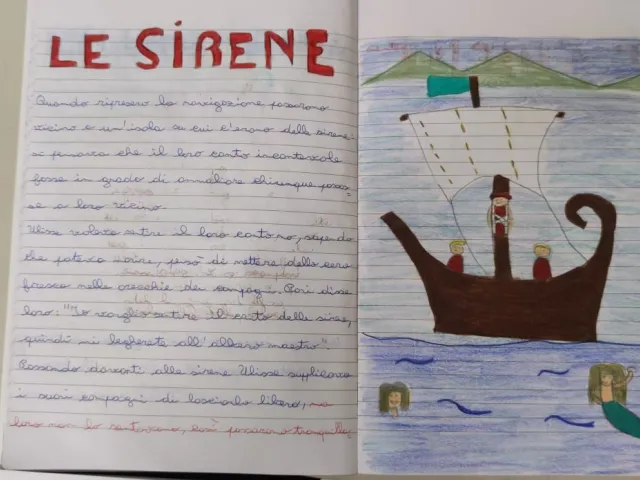 LE SIRENE
Quando ripresero la navigazione passarono
vicino a un'isola su cui c'erano delle sirene:
si pensava che il loro canto incantevole
fosse in grado di ammaliare chiunque passas
se a loro vicino.
Ulisse voleva sentire il loro canto ma, sapendo
che poteva morire, pensò di mettere della cera
fresca nelle orecchie dei compagni. Poi disse
loro: "Io voglio sentire il canto delle sirene,
quindi mi legherete all'albero maestro".
Passando davanti alle sirene Ulisse supplicava
i suoi compagni di lasciarlo libero, ma
loro non lo sentivano, così passarono